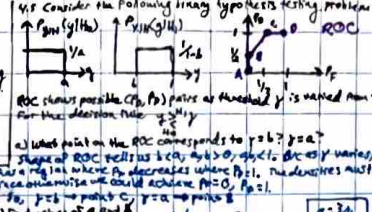 4.5 Consider the following binary hypothesis testing problem
P_{Y|H}(y|H₀) P_{Y|H}(y|H₁) P_D C D ROC
1/a 1/1-b 1 1/2 B
A 1/3 1 P_F
a y b 1 y
ROC shows possible (P_F, P_D) pairs as threshold γ is varied from
For the decision rule y ≷ γ H₁ H₀
a) What point on the ROC corresponds to γ = b? γ = a?
shape of ROC tells us b<a, a,b>0, a,b<1. as γ varies,
has a region where P_F decreases where P_D=1. The densities must
otherwise we could achieve P_F=0, P_D=1.
So, γ=b → point C, γ=a → point B